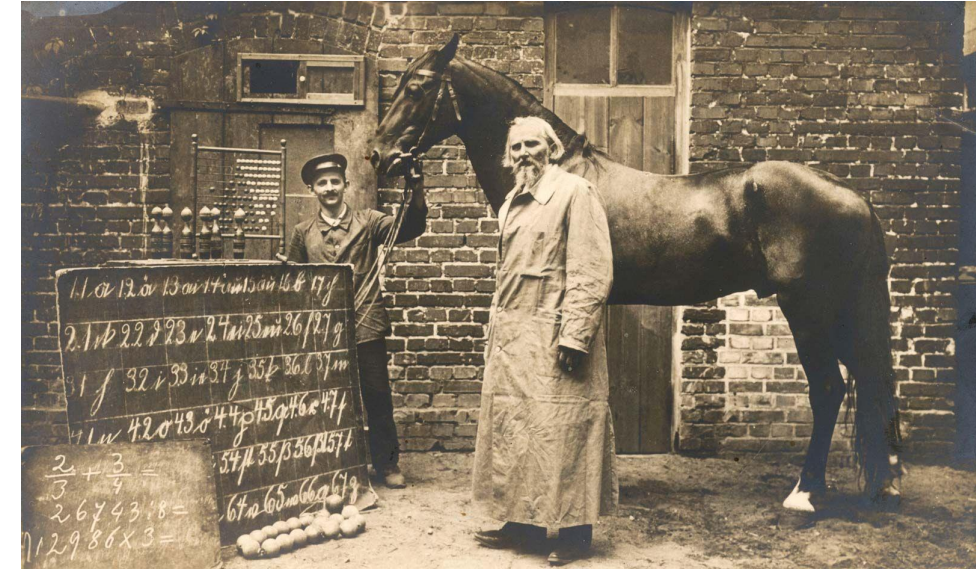 11 a 12 ä 13 au 14 äu 15 au 16 b 17 g
2.1 22 d 23 e 24 ei 25 eu 26 f 27 g
31 h 32 i 33 ie 34 j 35 k 36 l 37 m
41 n 42 o 43 ö 44 p 45 q 46 r 47 s
54 55 ß 56 57 t
64 65 66 67
2/3 + 3/4 =
26743:8=
12986x3=